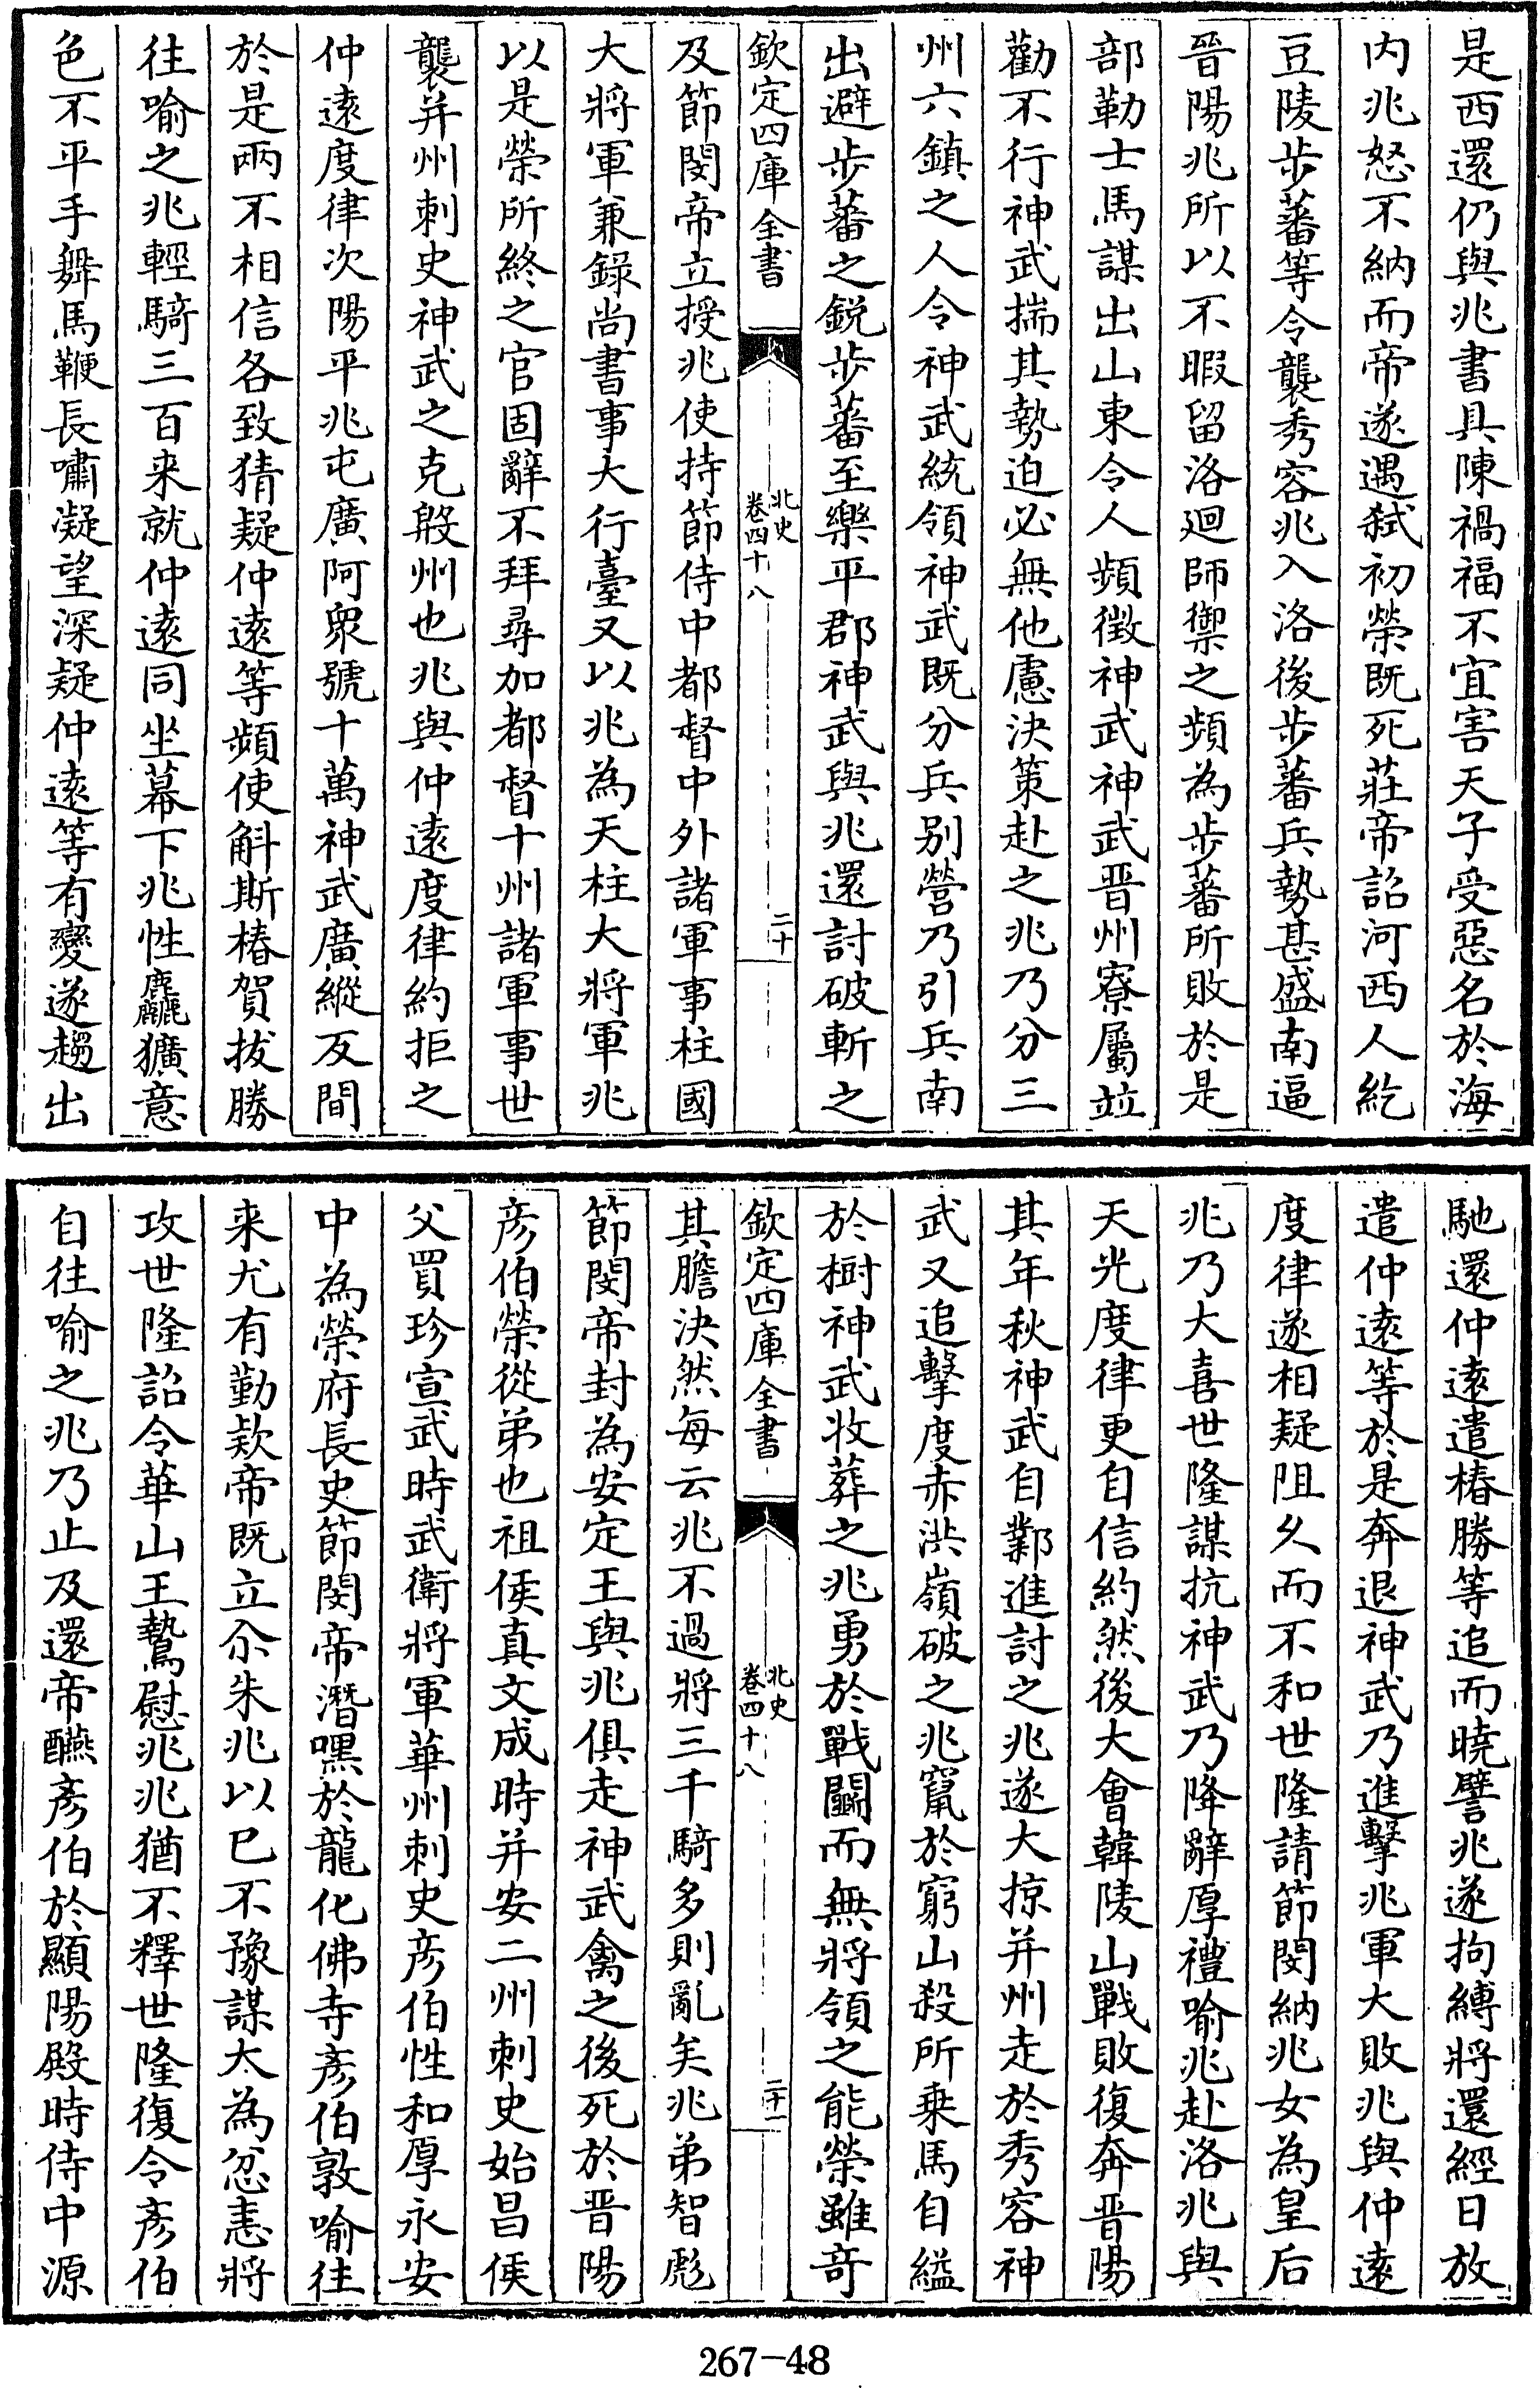 是西還仍與兆書具陳禍福不宜害天子受惡名於海
内兆怒不納而帝遂遇弑初榮既死莊帝詔河西人紇
豆陵步蕃等令襲秀容兆入洛後步蕃兵勢甚盛南逼
晉陽兆所以不暇留洛廻師禦之頻為步蕃所敗於是
部勒士馬謀出山東令人頻徵神武神武晉州寮屬竝
勸不行神武揣其勢迫必無他慮決策赴之兆乃分三
州六鎮之人令神武統領神武既分兵别營乃引兵南
出避步蕃之鋭步蕃至樂平郡神武與兆還討破斬之
欽定四庫全書
北史
卷四十八
二十
及節閔帝立授兆使持節侍中都督中外諸軍事柱國
大將軍兼錄尚書事大行臺又以兆為天柱大將軍兆
以是榮所終之官固辭不拜尋加都督十州諸軍事世
襲并州刺史神武之克殷州也兆與仲遠度律約拒之
仲遠度律次陽平兆屯廣阿衆號十萬神武廣縱反間
於是兩不相信各致猜疑仲遠等頻使斛斯椿賀拔勝
往喻之兆輕騎三百来就仲遠同坐幕下兆性麤獷意
色不平手舞馬鞭長嘯凝望深疑仲遠等有變遂趨出
馳還仲遠遣椿勝等追而曉譬兆遂拘縛將還經日放
遣仲遠等於是奔退神武乃進擊兆軍大敗兆與仲遠
度律遂相疑阻久而不和世隆請節閔納兆女為皇后
兆乃大喜世隆謀抗神武乃降辭厚禮喻兆赴洛兆與
天光度律更自信約然後大會韓陵山戰敗復奔晉陽
其年秋神武自鄴進討之兆遂大掠并州走於秀容神
武又追擊度赤洪嶺破之兆竄於窮山殺所乗馬自縊
於樹神武收葬之兆勇於戰鬭而無將領之能榮雖竒
欽定四庫全書
北史
卷四十八
二十一
其膽決然每云兆不過將三千騎多則亂矣兆弟智彪
節閔帝封為安定王與兆俱走神武禽之後死於晉陽
彦伯榮從弟也祖侯真文成時并安二州刺史始昌侯
父買珍宣武時武衛將軍華州刺史彦伯性和厚永安
中為榮府長史節閔帝潛嘿於龍化佛寺彦伯敦喻往
来尤有勤欵帝既立尒朱兆以已不豫謀大為忿恚將
攻世隆詔令華山王鷙慰兆兆猶不釋世隆復令彦伯
自往喻之兆乃止及還帝醼彦伯於顯陽殿時侍中源
267-48